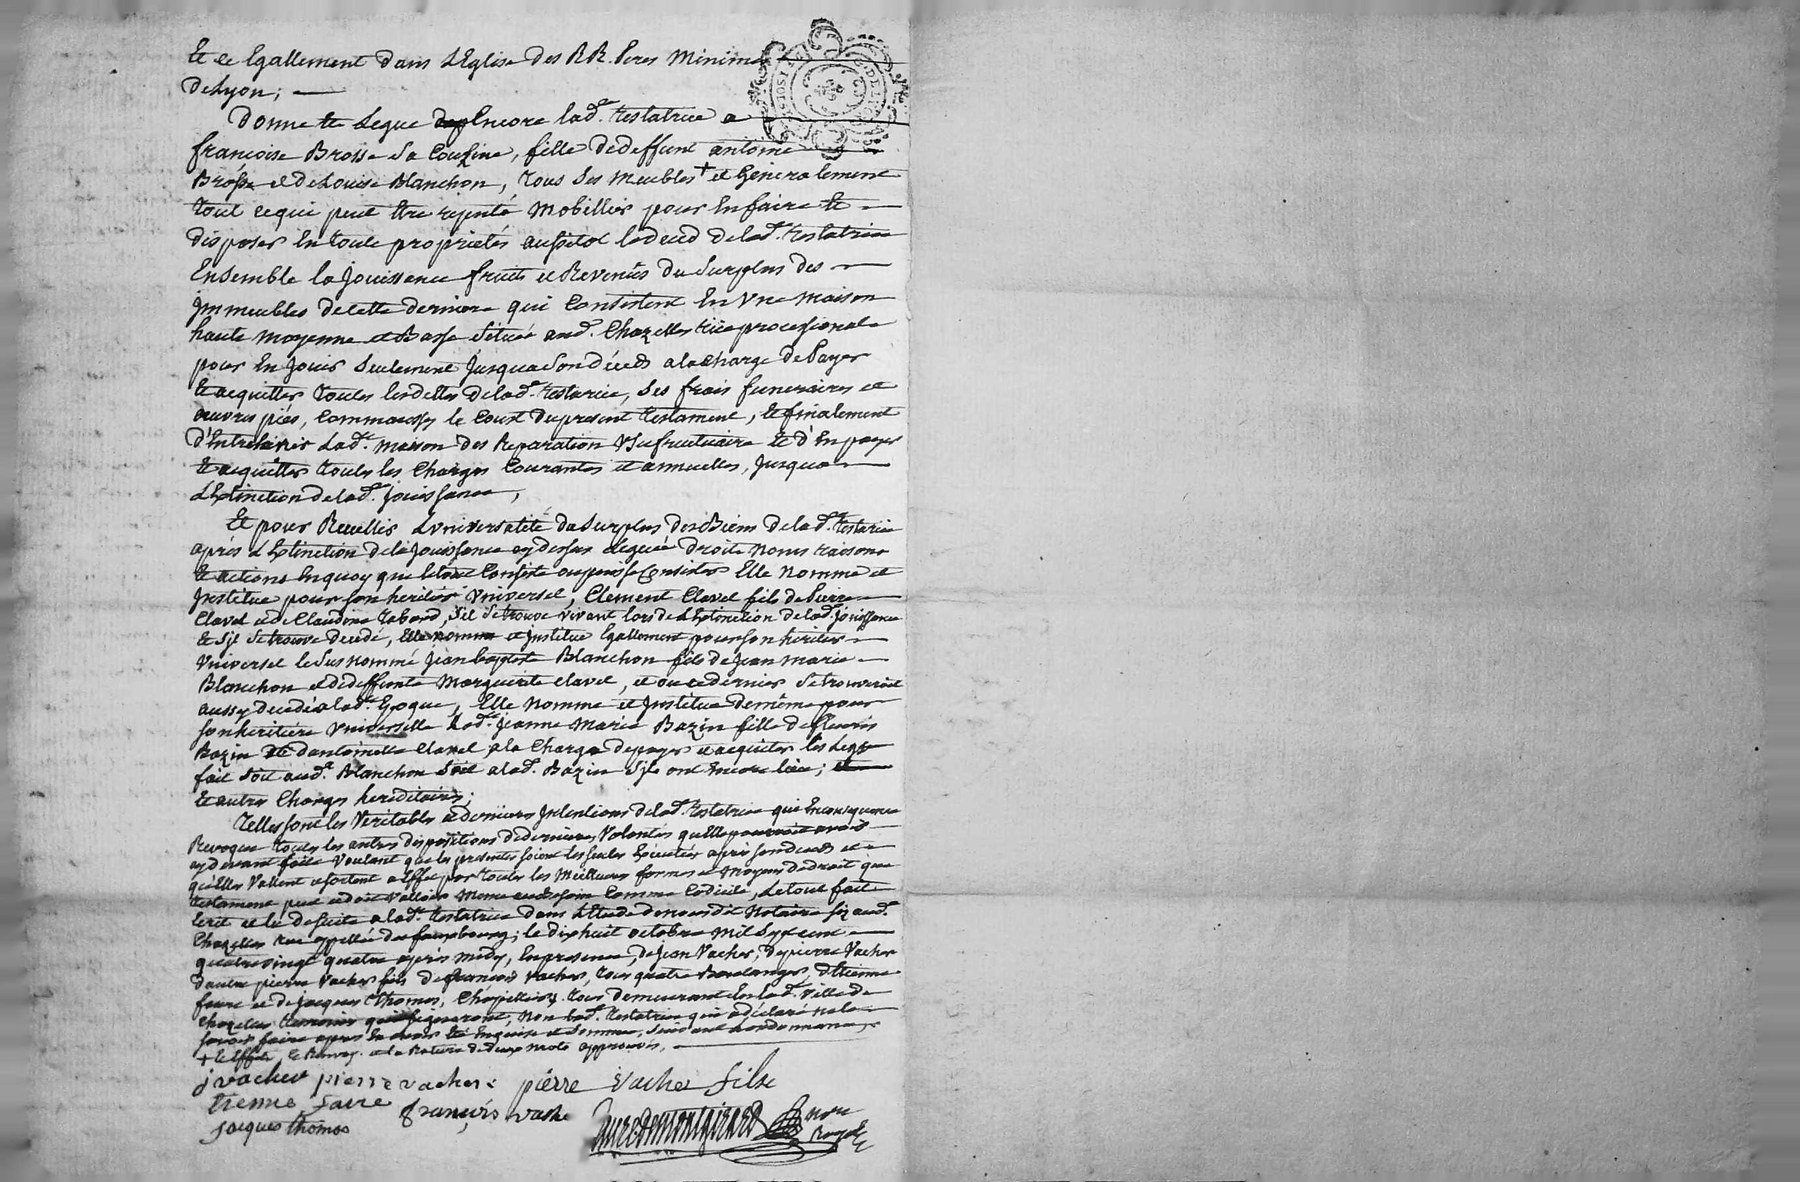 Et ce Egallement dans L'Eglise des RR. Peres Minimes
de Lyon;
Donne et Legue Encore lad.e testatrice a
francoise Brosse sa Couzine, fille de deffunt antoine
Brosse et de Louise Blanchon, tous ses meubles + et Generalement
tout ce qui peut Etre reputé Mobillier pour En faire et
disposer En toute proprietés aussitot le deced de lad.e testatrice
Ensemble la Jouissance fruits et Revenûs du Surplus des
Jmmeubles de cette derniere qui Consistent En Vne maison
haute moyenne et Basse Située aud.t Chazelles rüe processionale
pour En Jouir Seulement Jusqua Son déced a la charge de Payer
Et acquitter toutes les dettes de lad.e testatrice, Ses frais funeraires et
œuvres pies, Comme aussy le Coust du present testament, et finalement
d'Entretenir Lad.e maison des Reparation Vsufructuaire Et d'En payer
Et acquitter toutes les Charges Courantes et annuelles, Jusqua
L'Extinction de lad.e Jouissance,
Et pour Recullir Lvniversalité du Surplus des Biens de lad.e testatrice
après L'Extinction de la Jouissance cy dessus Leguée droits noms raisons
Et actions En quoy que le tout Consiste ou puisse Consister Elle nomme et
Jnstitue pour son heritier Vniversel, Clement Clavel fils de Pierre
Clavel et de Claudine tabard, S'il Se trouve vivant lors de L'Extinction de lad.e Jouissance
Et S'il Se trouve decedé, Elle nomme et Jnstitue Egallement pour son heritier
Vniversel le Susnommé Jean baptiste Blanchon fils de Jean marie
Blanchon et de deffunte Marguerite Clavel, et ou ce dernier Se trouveroit
aussy decedé a lad.e Epoque, Elle Nomme et Jnstitue de même pour
son heritière Vniverselle Lad.e Jeanne Marie Bazin fille de fleuris
Bazin et d'antoinette Clavel, a la Charge de payer et acquiter les Legs
fait Soit aud.t Blanchon Soit a lad.e Bazin S'ils ont Encore lieu;
Et autres Charges hereditaires;
Telles sont les Veritables et dernieres Jntentions de lad.e testatrice qui En consequence
Revoque toutes les autres dispositions de dernieres Volontés qu'Elle pourroit avoir
cy devant faite Voulant que les presentes soient les seules Executées après son deced et
qu'Elles Vallent et sortent a Effet par toutes les Meilleures formes et Moyens de droit que
testament peut et doit Valloir Meme au besoin Comme Codicile, Le tout fait
Ecrit et lû de suite a lad.e testatrice dans L'Etude de nousdit Notaire siz aud.t
Chazelles rue appellée du fauxbourg; le dix huit octobre Mil Sept cent
quatre vingt quatre apres midy, En presence, de Jean Vacher, de pierre Vacher
d'autre pierre Vacher fils de francois Vacher, tous quatre Boulanger, d'Etienne
faure et de Jacques Thomas, Chapelliers, tous demeurant En lad.e Ville de
Chazelles temoins qui signeront, Non lad.e testatrice qui a déclaré ne le
savoir faire apres En avoir Eté Enquise et Sommée, Suivant Lordonnance,
+ Et Effets, le Renvoy et la Rature de deux mots approuvés,
J vacher pierre vacher pierre Vacher fils
Etienne Faure françois vache
Jacques Thomas